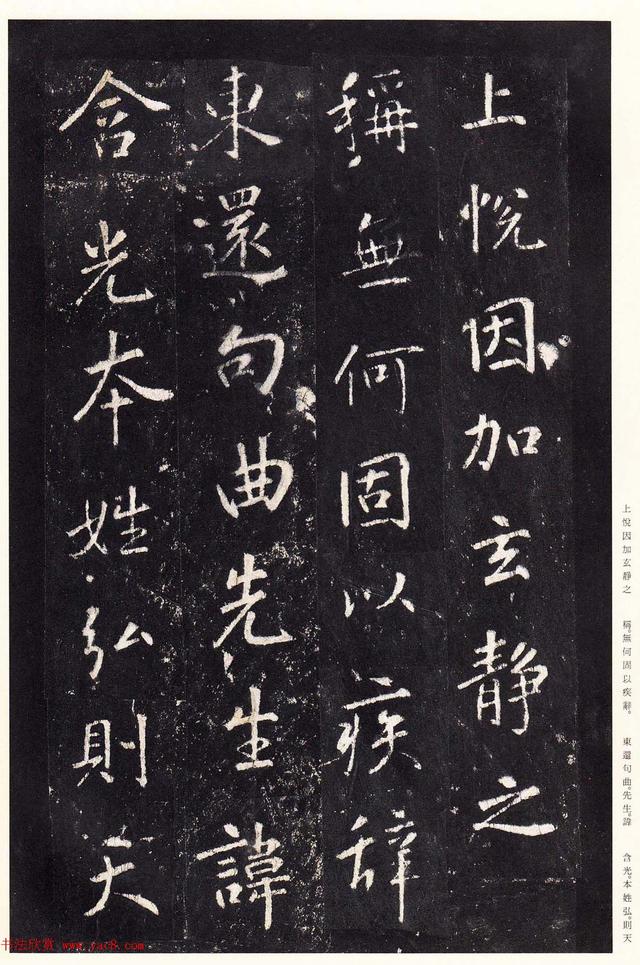 上悅因加玄靜之
稱無何固以疾辞
東還句曲先生諱
含光本姓弘則天
上悅因加玄靜之　稱。無何固以疾辭。　東還句曲。先生。諱　含光。本姓弘。則天
书法欣赏 www.yac8.com